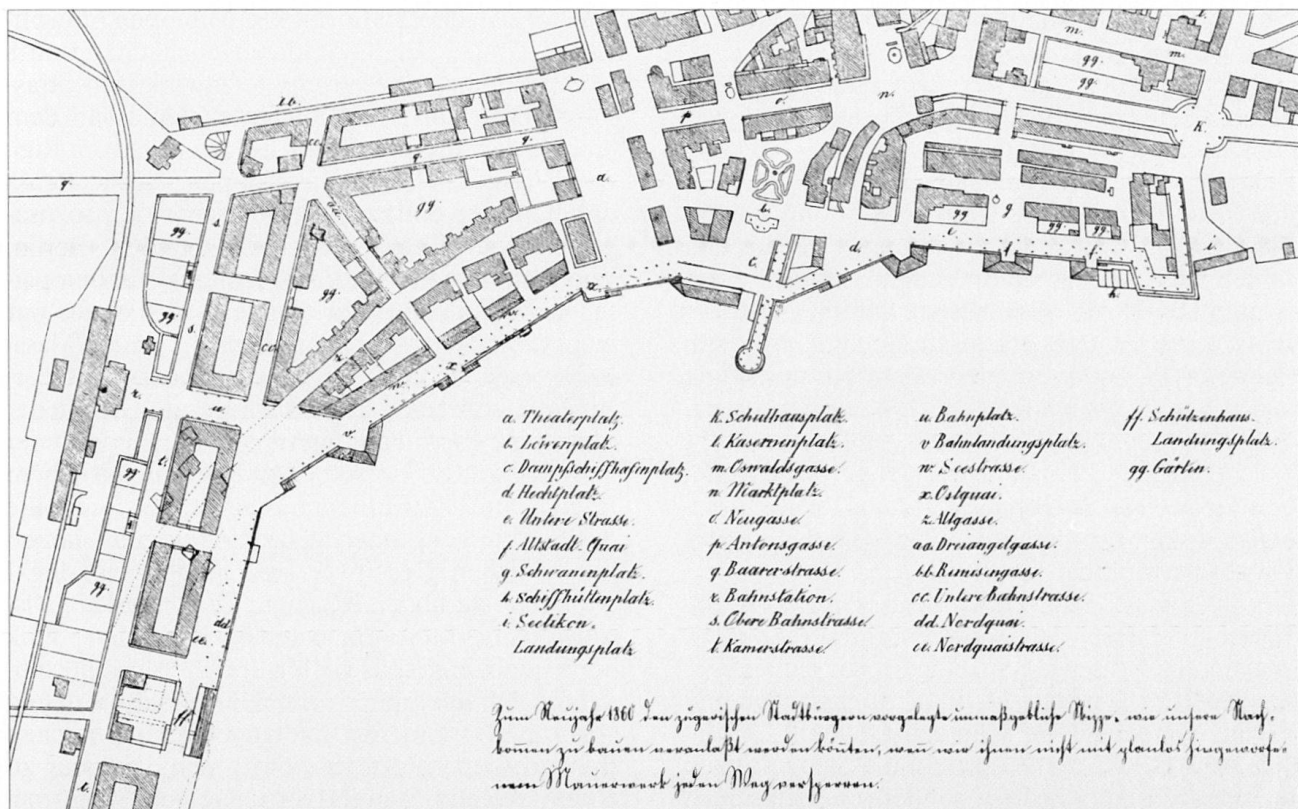 a. Theaterplatz.
b. Löwenplatz.
c. Dampfschiffhafenplatz.
d. Hechtplatz.
e. Untere Strasse.
f. Altstadt. Quai
g. Schwanenplatz.
h. Schiffhüttenplatz.
i. Seelikon.
Landungsplatz
k. Schulhausplatz.
l. Kasernenplatz.
m. Oswaldsgasse.
n. Marktplatz.
o. Neugasse.
p. Antonsgasse.
q. Baarerstrasse.
r. Bahnstation.
s. Obere Bahnstrasse.
t. Kamerstrasse.
u. Bahnplatz.
v Bahnlandungsplatz.
w. Seestrasse.
x. Ostquai.
z. Altgasse.
aa. Dreiangelgasse.
bb. Remisengasse.
cc. Untere Bahnstrasse.
dd. Nordquai.
ee. Nordquaistrasse.
ff. Schützenhaus.
Landungsplatz.
gg. Gärten.
Zum Neujahr 1860 den zugerischen Stadtbürgern vorgelegte unmaßgebliche Skizze, wie unsere Nach-
kommen zu bauen veranlaßt werden könnten, wenn wir ihnen nicht mit planlos hingeworfe-
nem Mauerwerk jeden Weg versperren.